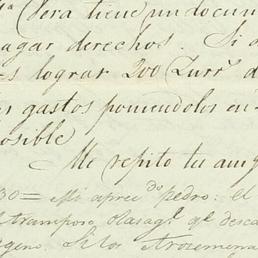 Vera tiene un docum
pagar derechos. Si a
s lograr 200 Zurr.s d
s gastos poniendoles en
posible
Me repito tu amig
30 = Mi aprec.do pedro: el
tramposo Olasag.l q.l desca
Si los Arosemena